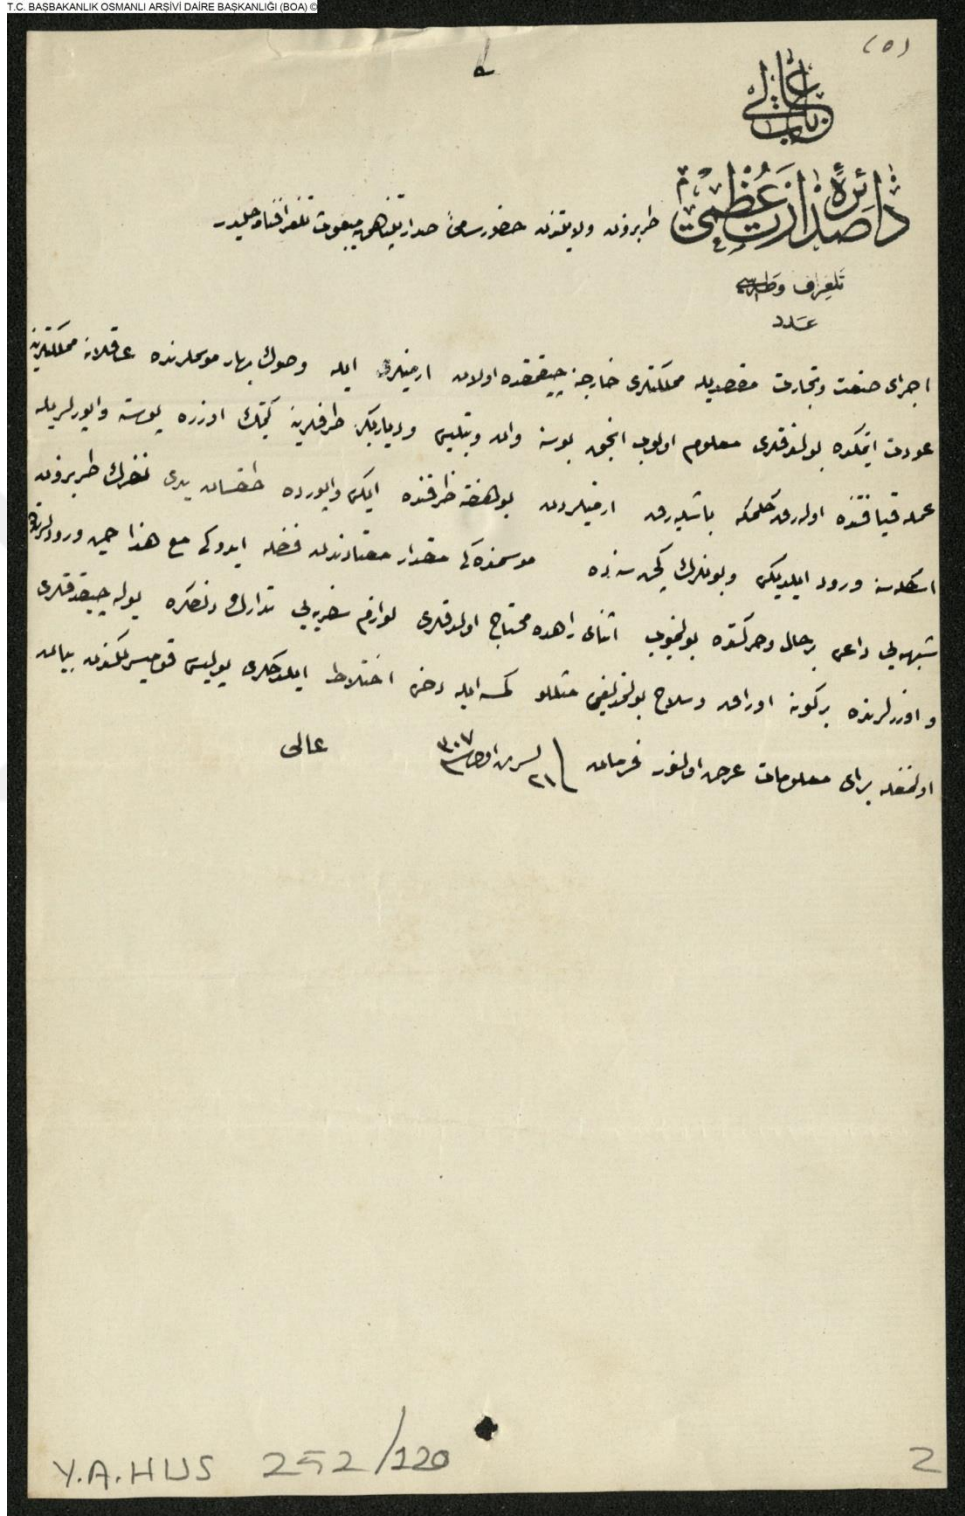 T.C. BAŞBAKANLIK OSMANLI ARŞİVİ DAİRE BAŞKANLIĞI (BOA) ©
(٥)
باب عالی
دائرۀ صدارت عظمی
طربزون ولایتندن حضور سامئ صدارتپناهی یه مبعوث تلغرافنامه حلیدر
تلغراف
عدد
اجرای صنعت وتجارت مقصدیله مملکتلری خارجنه چیقمقده اولان ارمنیلرك ایله وصوك بهار موسملرنده عائله مملکتلرینه
عودت ایتمکده بولندقلری معلوم اولوب انجق بو سنه وان وبتلیس ودیاربکر طرفلرینه کیتمك اوزره پوسته واپورلریله
عمله قیافتنده اوله رق کلمکه باشلایه رق ارمنیلردن بو هفته ظرفنده ایکی واپورده طقسان یدی نفرك طربزون
اسکله سنه ورود ایلدیکی وبونلرك کچن سنه موسمنده کی مقدار معتاددن فضله ایدوکی مع هذا حین ورودلرنده
شبهه یی داعی بر حال وحرکتده بولنمیوب اثنای راهده محتاج اولدقلری لوازم سفریه یی تدارك دنصکره یوله چیقدقلری
و اوزرلرنده بر کونه اوراق وسلاح بولنمدیغی مثللو کسه ایله دخی اختلاط ایلمدکلری پولیس قومیسرلکندن بیان
اولنمغله برای معلومات عرض اولنور فرمان ٢١ تشرین اول سنه ٣٠٧ عالی
Y.A.HUS 252/120
2